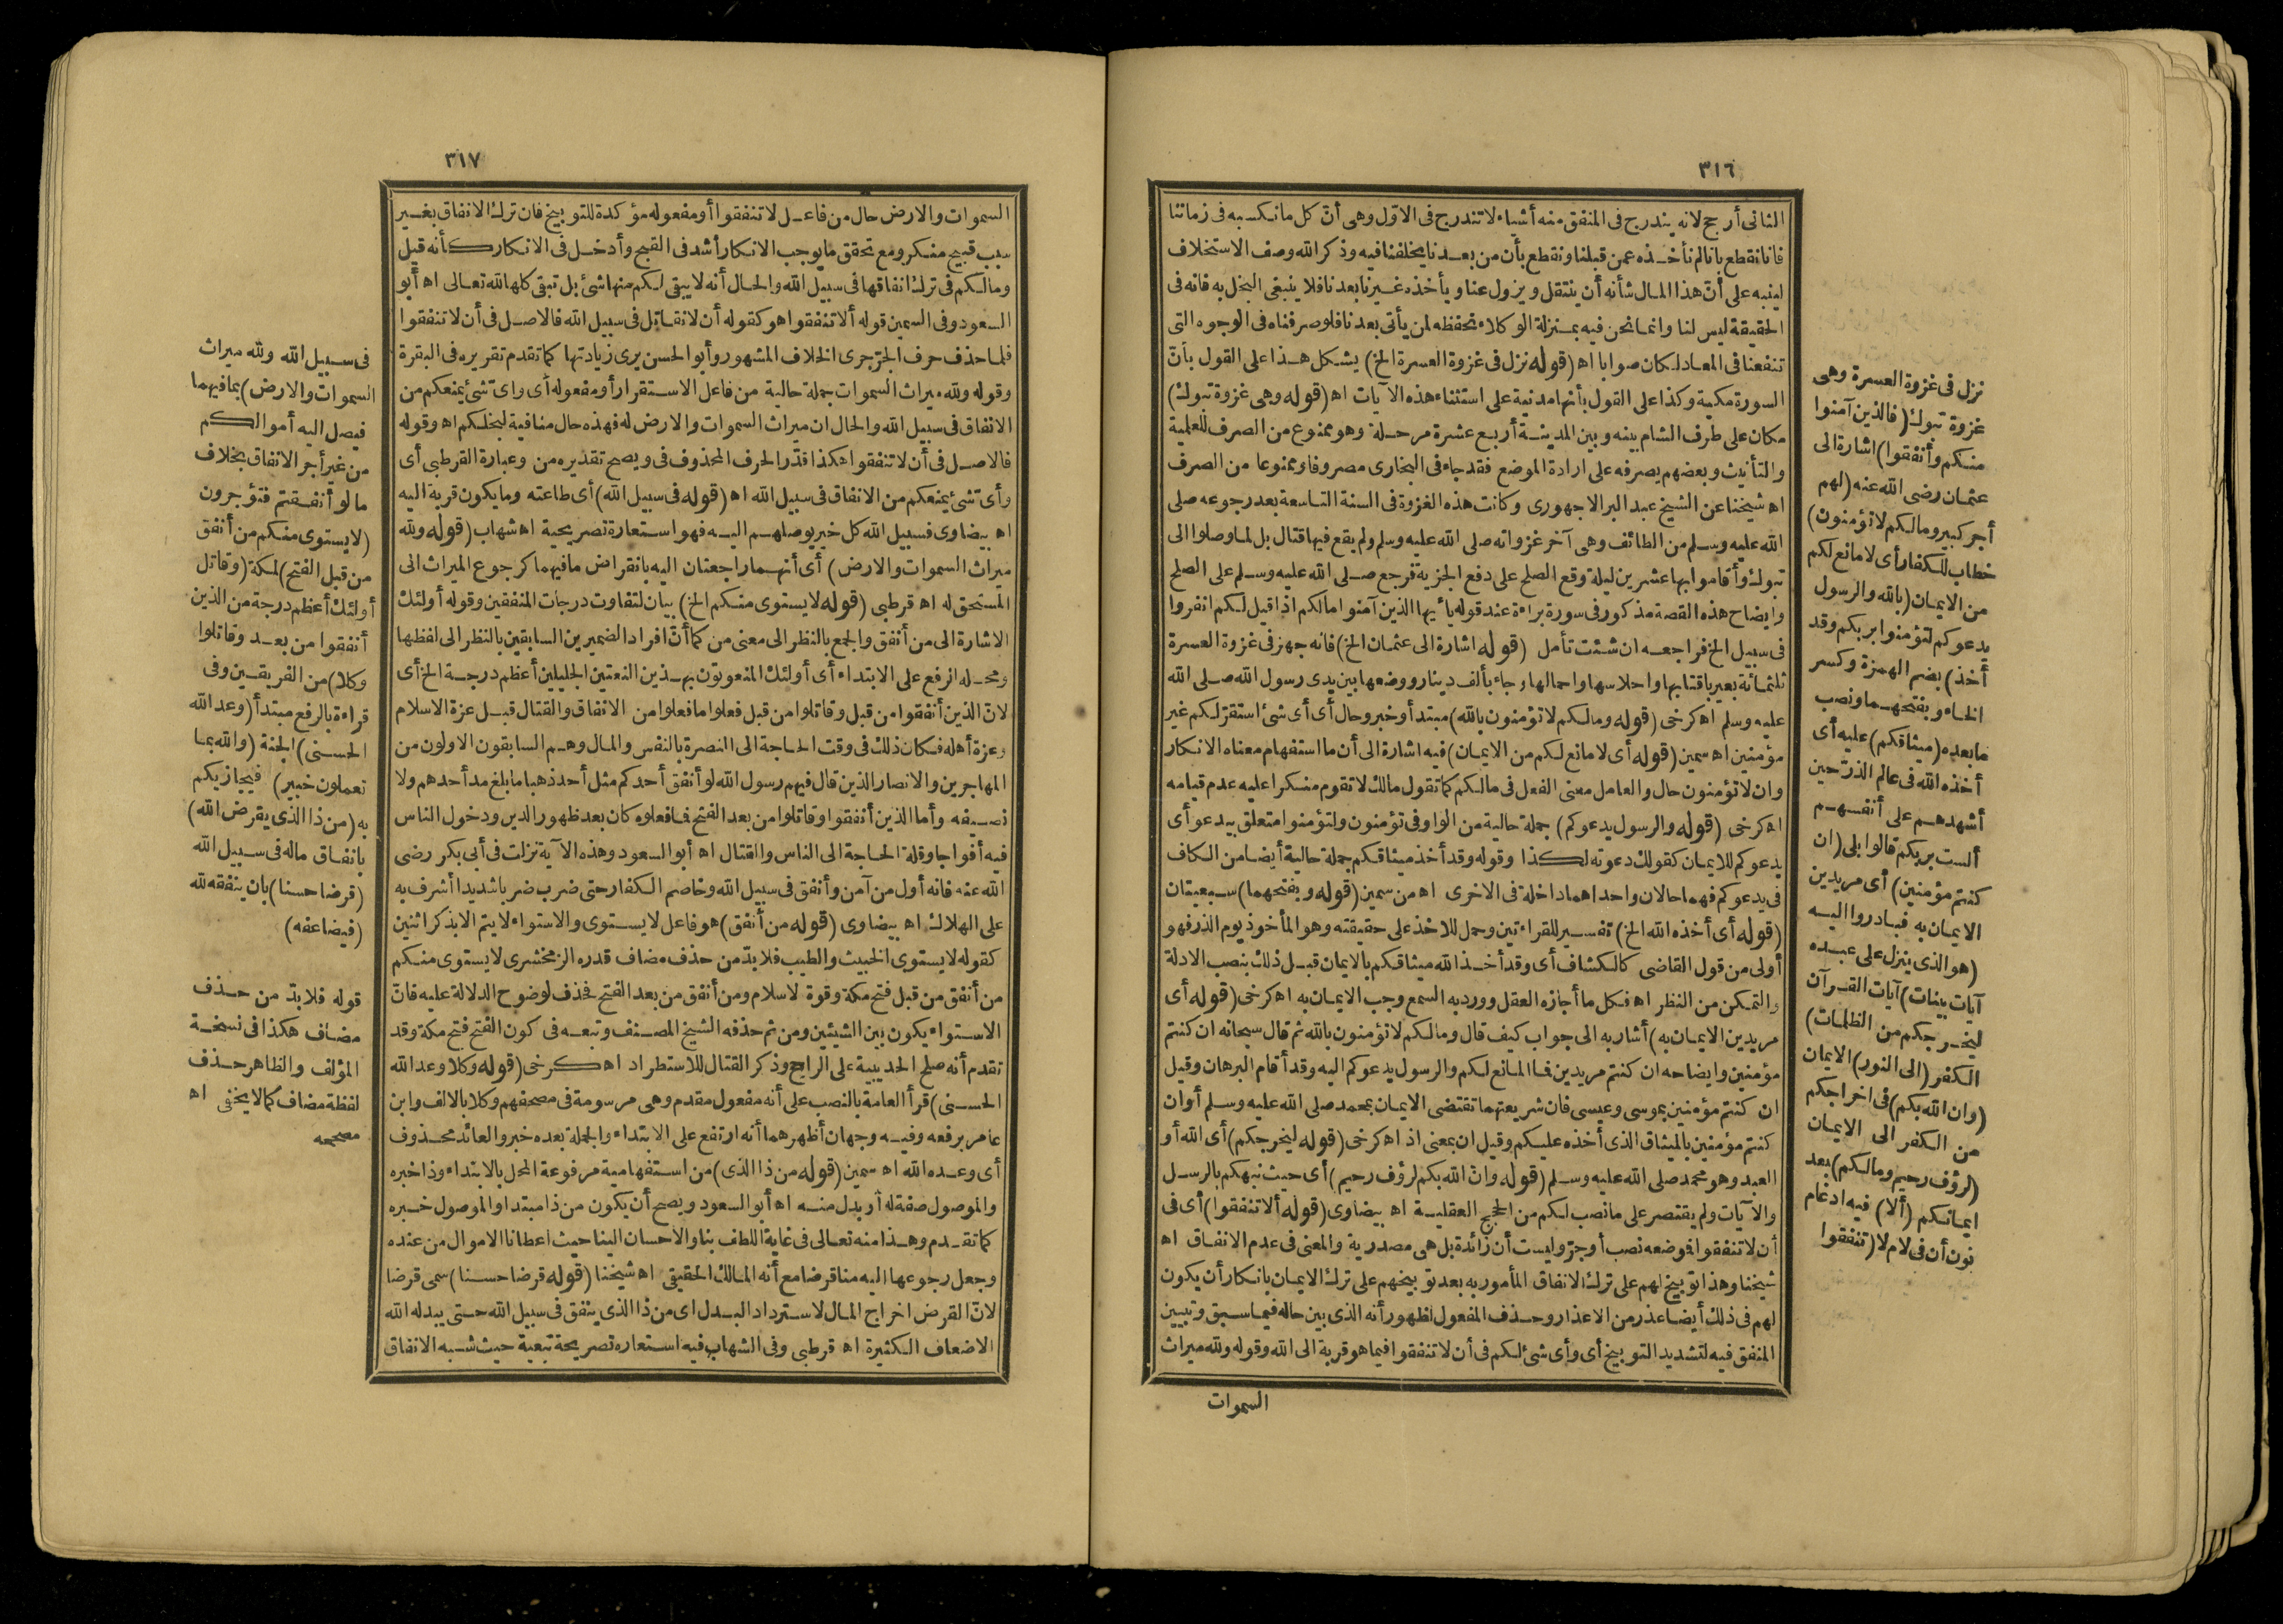 ٣١٦
الثانى أرجح لانه يندرج فى المنفق منه أشياء لا تندرج فى الاوّل وهى أنّ كل ما نكسبه فى زماننا
فانا نقطع بانالم نأخذه عمن قبلنا ونقطع بأن من بعدنا يخلفنا فيه وذكر الله وصف الاستخلاف
لينبه على أنّ هذا المال شأنه أن ينتقل ويزول عنا ويأخذه غيرنا بعدنا فلا ينبغى البخل به فانه فى
الحقيقة ليس لنا وانما نحن فيه بمنزلة الوكلاء نحفظه لمن يأتى بعدنا فلو صرفناه فى الوجوه التى
تنفعنا فى المعاد لكان صوابا اه (قوله نزل فى غزوة العسرة الخ) يشكل هذا على القول بأنّ
السورة مكية وكذا على القول بأنها مدنية على استثناء هذه الآيات اه (قوله وهى غزوة تبوك)
مكان على طرف الشام بينه وبين المدينة أربع عشرة مرحلة وهو ممنوع من الصرف للعلمية
والتأنيث وبعضهم يصرفه على ارادة الموضع فقد جاء فى البخارى مصروفا وممنوعا من الصرف
اه شيخنا عن الشيخ عبد البر الاجهورى وكانت هذه الغزوة فى السنة التاسعة بعد رجوعه صلى
الله عليه وسلم من الطائف وهى آخر غزواته صلى الله عليه وسلم ولم يقع فيها قتال بل لما وصلوا الى
تبوك وأقاموا بها عشرين ليلة وقع الصلح على دفع الجزية فرجع صلى الله عليه وسلم على الصلح
وايضاح هذه القصة مذكور فى سورة براءة عند قوله يأيها الذين آمنوا مالكم اذا قيل لكم انفروا
فى سبيل الخ فراجعه ان شئت تأمل (قوله اشارة الى عثمان الخ) فانه جهز فى غزوة العسرة
ثلثمائة بعير باقتابها واحلاسها واحمالها وجاء بألف دينار ووضعها بين يدى رسول الله صلى الله
عليه وسلم اه كرخى (قوله ومالكم لا تؤمنون بالله) مبتدأ وخبر وحال أى أى شئ استقرّ لكم غير
مؤمنين اه سمين (قوله أى لا مانع لكم من الايمان) فيه اشارة الى أن ما استفهام معناه الانكار
وان لا تؤمنون حال والعامل معنى الفعل فى مالكم كما تقول مالك لا تقوم منكرا عليه عدم قيامه
اه كرخى (قوله والرسول يدعوكم) جملة حالية من الواو فى تؤمنون ولتؤمنوا متعلق بيدعو أى
يدعوكم للايمان كقولك دعوته لكذا وقوله وقد أخذ ميثاقكم جملة حالية أيضا من الكاف
فى يدعوكم فهما حالان واحداهما داخلة فى الاخرى اه من سمين (قوله وبفتحهما) سبعيتان
(قوله أى أخذه الله الخ) تفسير للقراءتين وحمل للاخذ على حقيقته وهو المأخوذ يوم الذر فهو
أولى من قول القاضى كالكشاف أى وقد أخذ الله ميثاقكم بالايمان قبل ذلك بنصب الادلة
والتمكن من النظر اه فكل ما أجازه العقل وورد به السمع وجب الايمان به اه كرخى (قوله أى
مريدين الايمان به) أشار به الى جواب كيف قال ومالكم لا تؤمنون بالله ثم قال سبحانه ان كنتم
مؤمنين وايضاحه ان كنتم مريدين فما المانع لكم والرسول يدعوكم اليه وقد أقام البرهان وقيل
ان كنتم مؤمنين بموسى وعيسى فان شريعتهما تقتضى الايمان بمحمد صلى الله عليه وسلم أو ان
كنتم مؤمنين بالميثاق الذى أخذه عليكم وقيل ان بمعنى اذ اه كرخى (قوله ليخرجكم) أى الله أو
العبد وهو محمد صلى الله عليه وسلم (قوله وانّ الله بكم لرؤف رحيم) أى حيث نبهكم بالرسل
والآيات ولم يقتصر على ما نصب لكم من الحجج العقلية اه بيضاوى (قوله ألا تنفقوا) أى فى
أن لا تنفقوا فوضعه نصب أو جرّ وليست أن زائدة بل هى مصدرية والمعنى فى عدم الانفاق اه
شيخنا وهذا توبيخ لهم على ترك الانفاق المأمور به بعد توبيخهم على ترك الايمان بانكار أن يكون
لهم فى ذلك أيضا عذر من الاعذار وحذف المفعول لظهور أنه الذى بين حاله فيما سبق وتبيين
المنفق فيه لتشديد التوبيخ أى وأى شئ لكم فى أن لا تنفقوا فيما هو قربة الى الله وقوله ولله ميراث
السموات
نزل فى غزوة العسرة وهى
غزوة تبوك (فالذين آمنوا
منكم وأنفقوا) اشارة الى
عثمان رضى الله عنه (لهم
أجر كبير ومالكم لا تؤمنون)
خطاب للكفار أى لا مانع لكم
من الايمان (بالله والرسول
يدعوكم لتؤمنوا بربكم وقد
أخذ) بضم الهمزة وكسر
الخاء وبفتحهما ونصب
ما بعده (ميثاقكم) عليه أى
أخذه الله فى عالم الذرّ حين
أشهدهم على أنفسهم
ألست بربكم قالوا بلى (ان
كنتم مؤمنين) أى مريدين
الايمان به فبادروا اليه
(هو الذى ينزل على عبده
آيات بينات) آيات القرآن
ليخرجكم من الظلمات)
الكفر (الى النور) الايمان
(وان الله بكم) فى اخراجكم
من الكفر الى الايمان
(لرؤف رحيم ومالكم) بعد
ايمانكم (ألا) فيه ادغام
نون أن فى لام لا (تنفقوا
٣١٧
السموات والارض حال من فاعل لا تنفقوا أو مفعوله مؤكدة للتوبيخ فان ترك الانفاق بغير
سبب قبيح منكر ومع تحقق ما يوجب الانكار أشد فى القبح وأدخل فى الانكار كأنه قيل
ومالكم فى ترك انفاقها فى سبيل الله والحال أنه لا يبقى لكم منها شئ بل تبقى كلها لله تعالى اه أبو
السعود وفى السمين قوله ألا تنفقوا هو كقوله أن لا نقاتل فى سبيل الله فالاصل فى أن لا تنفقوا
فلما حذف حرف الجرّ جرى الخلاف المشهور وأبو الحسن يرى زيادتها كما تقدم تقريره فى البقرة
وقوله ولله ميراث السموات جملة حالية من فاعل الاستقرار أو مفعوله أى وأى شئ يمنعكم من
الانفاق فى سبيل الله والحال ان ميراث السموات والارض له فهذه حال منافية لبخلكم اه وقوله
فالاصل فى أن لا تنفقوا هكذا قدّر الحرف المحذوف فى ويصح تقديره من وعبارة القرطبى أى
وأى شئ يمنعكم من الانفاق فى سبيل الله اه (قوله فى سبيل الله) أى طاعته وما يكون قربة اليه
اه بيضاوى فسبيل الله كل خير يوصلهم اليه فهو استعارة تصريحية اه شهاب (قوله ولله
ميراث السموات والارض) أى أنهما راجعتان اليه بانقراض ما فيهما كرجوع الميراث الى
المستحق له اه قرطبى (قوله لا يستوى منكم الخ) بيان لتفاوت درجات المنفقين وقوله أولئك
الاشارة الى من أنفق والجمع بالنظر الى معنى من كما أنّ افراد الضميرين السابقين بالنظر الى لفظها
ومحله الرفع على الابتداء أى أولئك المنعوتون بهذين النعتين الجليلين أعظم درجة الخ أى
لانّ الذين أنفقوا من قبل وقاتلوا من قبل فعلوا ما فعلوا من الانفاق والقتال قبل عزة الاسلام
وعزة أهله فكان ذلك فى وقت الحاجة الى النصرة بالنفس والمال وهم السابقون الاولون من
المهاجرين والانصار الذين قال فيهم رسول الله لو أنفق أحدكم مثل أحد ذهبا ما بلغ مد أحدهم ولا
نصيفه وأما الذين أنفقوا وقاتلوا من بعد الفتح فما فعلوه كان بعد ظهور الدين ودخول الناس
فيه أفواجا وقلة الحاجة الى الناس والقتال اه أبو السعود وهذه الآية نزلت فى أبى بكر رضى
الله عنه فانه أول من آمن وأنفق فى سبيل الله وخاصم الكفار حتى ضرب ضربا شديدا أشرف به
على الهلاك اه بيضاوى (قوله من أنفق) هو فاعل لا يستوى والاستواء لا يتم الا بذكر اثنين
كقوله لا يستوى الخبيث والطيب فلا بدّ من حذف مضاف قدره الزمخشرى لا يستوى منكم
من أنفق من قبل فتح مكة وقوة الاسلام ومن أنفق من بعد الفتح فحذف لوضوح الدلالة عليه فانّ
الاستواء يكون بين الشيئين ومن ثم حذفه الشيخ المصنف وتبعه فى كون الفتح فتح مكة وقد
تقدم أنه صلح الحديبية على الراجح وذكر القتال للاستطراد اه كرخى (قوله وكلا وعد الله
الحسنى) قرأ العامة بالنصب على أنه مفعول مقدم وهى مرسومة فى مصحفهم وكلا بالالف وابن
عامر برفعه وفيه وجهان أظهرهما أنه ارتفع على الابتداء والجملة بعده خبر والعائد محذوف
أى وعده الله اه سمين (قوله من ذا الذى) من استفهامية مرفوعة المحل بالابتداء وذا خبره
والموصول صفة له أو بدل منه اه أبو السعود ويصح أن يكون من ذا مبتدا والموصول خبره
كما تقدم وهذا منه تعالى فى غاية اللطف بنا والاحسان الينا حيث أعطانا الاموال من عنده
وجعل رجوعها اليه منا قرضا مع أنه المالك الحقيقى اه شيخنا (قوله قرضا حسنا) سمى قرضا
لانّ القرض اخراج المال لاسترداد البدل اى من ذا الذى ينفق فى سبيل الله حتى يبدله الله
الاضعاف الكثيرة اه قرطبى وفى الشهاب فيه استعارة تصريحة تبعية حيث شبه الانفاق
فى سبيل الله ولله ميراث
السموات والارض) بما فيهما
فيصل اليه أموالكم
من غير أجر الانفاق بخلاف
ما لو أنفقتم فتؤجرون
(لا يستوى منكم من أنفق
من قبل الفتح) لمكة (وقاتل
أولئك أعظم درجة من الذين
أنفقوا من بعد وقاتلوا
وكلا) من الفريقين وفى
قراءة بالرفع مبتدأ (وعد الله
الحسنى) الجنة (والله بما
تعملون خبير) فيجازيكم
به (من ذا الذى يقرض الله)
بانفاق ماله فى سبيل الله
(قرضا حسنا) بان ينفقه لله
(فيضاعفه)
قوله فلا بدّ من حذف
مضاف هكذا فى نسخة
المؤلف والظاهر حذف
لفظة مضاف كما لا يخفى اه
مصححه